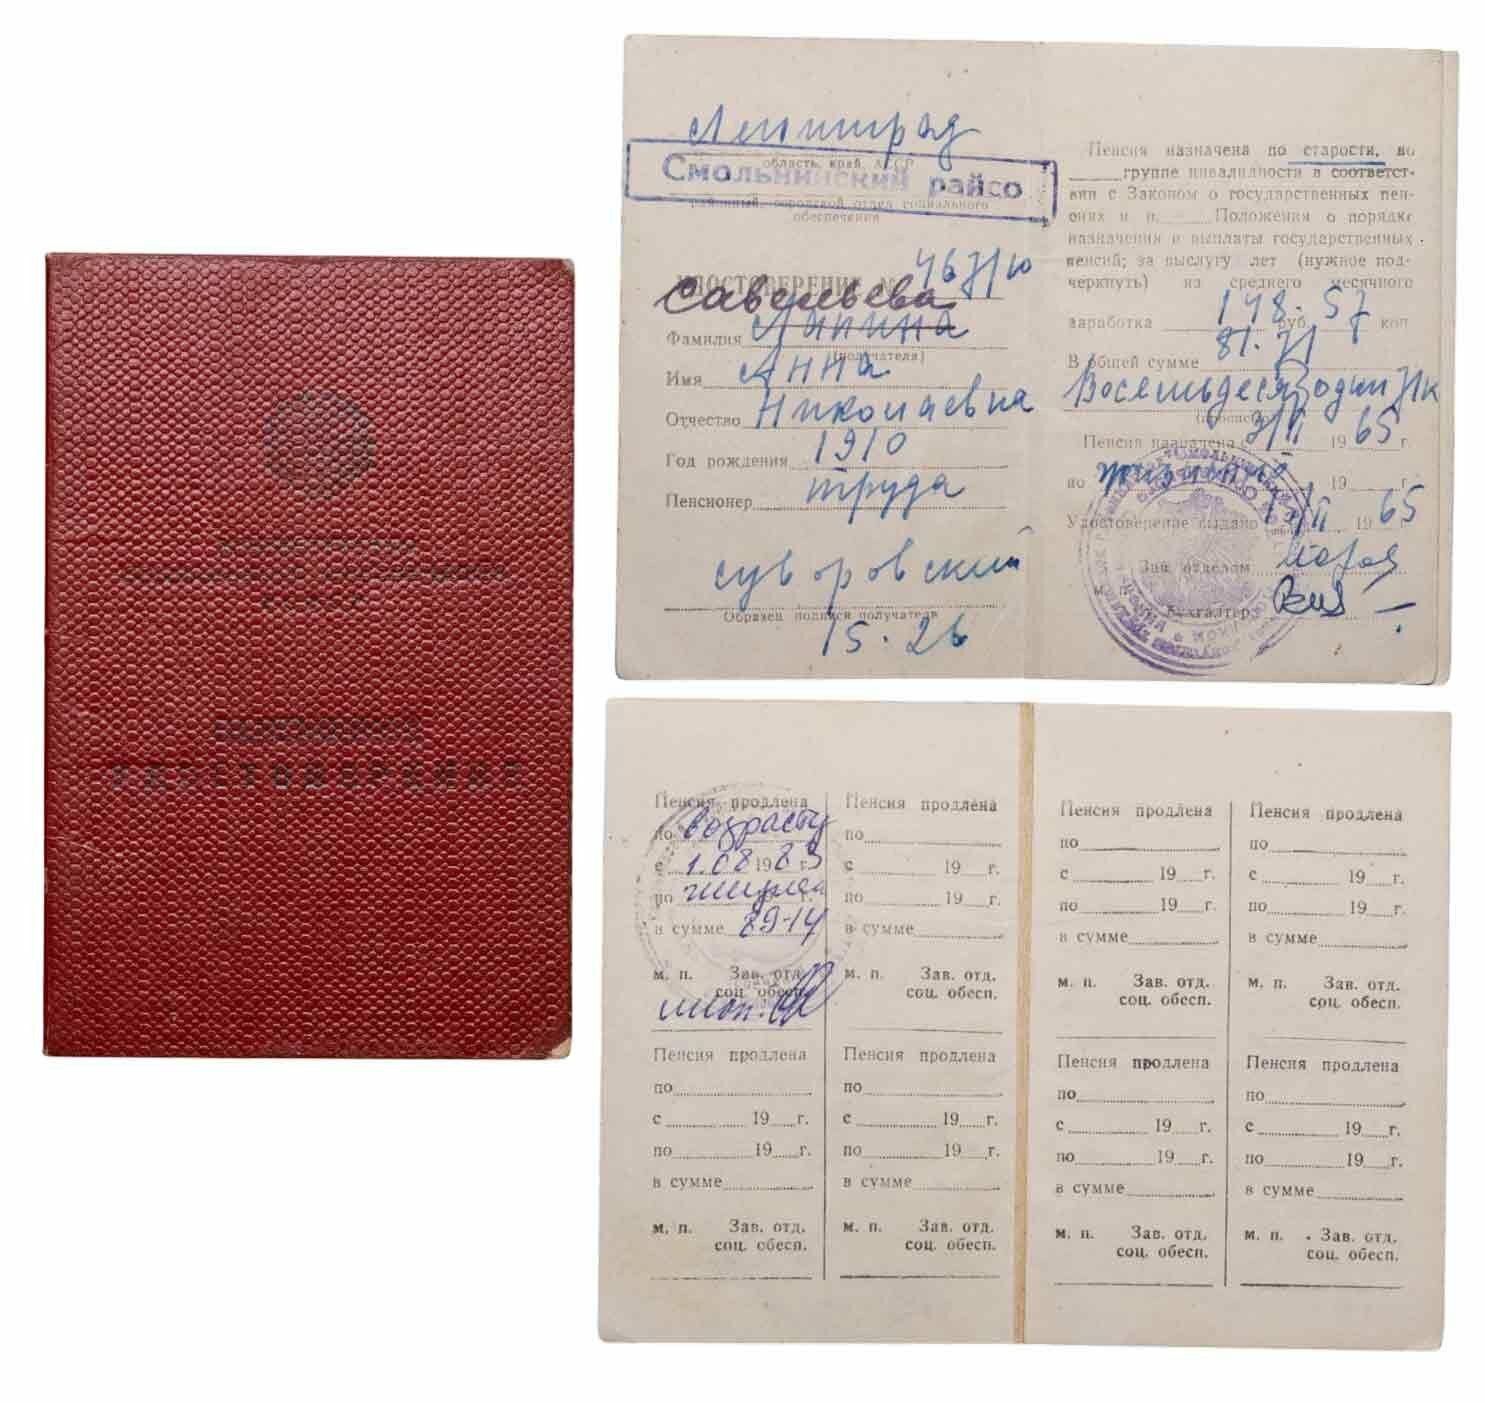 МИНИСТЕРСТВО
СОЦИАЛЬНОГО ОБЕСПЕЧЕНИЯ
РСФСР
ПЕНСИОННОЕ
УДОСТОВЕРЕНИЕ
Ленинград
область, край, АССР
Смольнинский райсо
районный, городской отдел социального
обеспечения
УДОСТОВЕРЕНИЕ №
Савельева
Фамилия Лапина
(получателя)
Имя Анна
Отчество Николаевна
Год рождения 1910
Пенсионер труда
суворовский
Образец подписи получателя
15-26
Пенсия назначена по старости, по
группе инвалидности в соответст-
вии с Законом о государственных пен-
сиях и п. Положения о порядке
назначения и выплаты государственных
пенсий; за выслугу лет (нужное под-
черкнуть) из среднего месячного
заработка 148-57 руб. коп
В общей сумме 81-71
Восемьдесят один 71к
(прописью)
Пенсия назначена с 19 65 г.
по пожизненно 19 г.
Удостоверение выдано 19 65
Зав. отделом
м. п. Бухгалтер
Пенсия продлена
по возрасту
с 1.08 1983 г.
по
в сумме 89-14
м. п. Зав. отд.
соц. обесп.
Пенсия продлена
по
с 19 г.
по 19 г.
в сумме
м. п. Зав. отд.
соц. обесп.
Пенсия продлена
по
с 19 г.
по 19 г.
в сумме
м. п. Зав. отд.
соц. обесп.
Пенсия продлена
по
с 19 г.
по 19 г.
в сумме
м. п. Зав. отд.
соц. обесп.
Пенсия продлена
по
с 19 г.
по 19 г.
в сумме
м. п. Зав. отд.
соц. обесп.
Пенсия продлена
по
с 19 г.
по 19 г.
в сумме
м. п. Зав. отд.
соц. обесп.
Пенсия продлена
по
с 19 г.
по 19 г.
в сумме
м. п. Зав. отд.
соц. обесп.
Пенсия продлена
по
с 19 г.
по 19 г.
в сумме
м. п. Зав. отд.
соц. обесп.